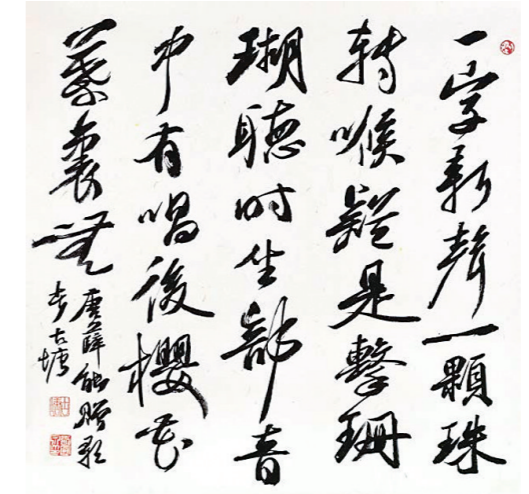 一字新聲一顆珠
轉喉疑是擊珊
瑚聽时坐部音
中有唱後櫻花
葉裏無
唐薛能贈歌
古塘